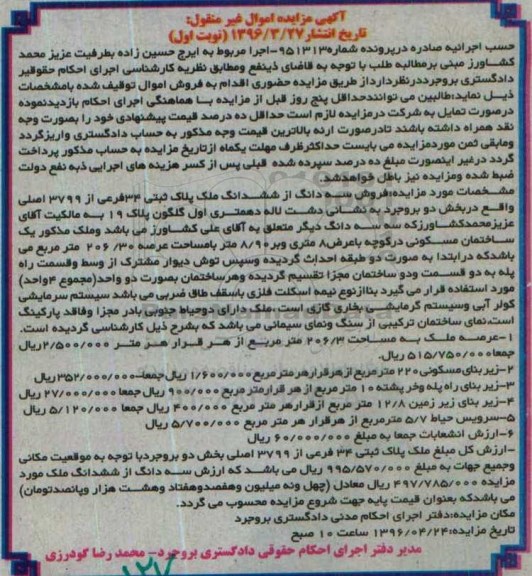 آگهی مزایده اموال غیر منقول:
تاریخ انتشار ۱۳۹۶/۳/۲۷ (نوبت اول)
حسب اجرائیه صادره درپرونده شماره ۹۵۱۳۱۳-اجرا مربوط به ایرج حسین زاده بطرفیت عزیز محمد
کشاورز مبنی برمطالبه طلب با توجه به تقاضای ذینفع ومطابق نظریه کارشناسی اجرای احکام حقوقی
دادگستری بروجرددرنظرداردازطریق مزایده حضوری اقدام به فروش اموال توقیف شده بامشخصات
ذیل نماید:طالبین می توانندحداقل پنج روز قبل از مزایده بـا هماهنگی اجرای احکام بازدیدنموده
درصورت تمایل به شرکت درمزایده لازم است حداقل ده درصد قیمت پیشنهادی خود را بصورت وجه
نقد همراه داشته باشند تادرصورت ارئه بالاترین قیمت وجه مذکور به حساب دادگستری واریزگردد
ومابقی ثمن موردمزایده می بایست حداکثرظرف مهلت یکماه ازتاریخ مزایده به حساب مذکور پرداخت
گردد درغیر اینصورت مبلغ ده درصد سپرده شده قبلی پس از کسر هزینه های اجرایی به نفع دولت
ضبط شده ومزایده نیز باطل خواهدشد.
مشخصات مورد مزایده:فروش سه دانگ از ششدانگ ملک پلاک ثبتی ۳۴فرعی از ۳۷۹۹ اصلی
واقـع دربخش دو بروجردبه نشـانی دشـت لاله دهمتـری اول گلگون پلاک ۱۹ بـه مالکیت آقای
عزیزمحمدکشاورزکه سـه دانگ دیگر متعلق به آقای علی کشـاورز می باشد وملک مذکور یک
سـاختمان مسـکونی درکوچه باعرض۸ متری وبر۸/۹۰ متر بامساحت عرصه ۲۰۶/۳۰ متر مربع می
باشدکه درابتدا به صورت دو طبقه احداث گردیده وسپس توش دیوار مشترک از وسط وقسمت راه
پله به دو قسـمت ودو ساختمان مجزا تقسیم گردیده وهرساختمان بصورت دو واحد(مجموع ۴واحد)
مورد استفاده قرار می گیرد بناازنوع نیمه اسکلت فلزی باسقف طاق ضربی می باشد سیستم سرمایشی
کولر آبی وسیستم گرمایشـی بخاری گازی اسـت.ملک دارای دوحیاط جنوبی بادر مجزا وفاقد پارکینگ
است.نمای ساختمان ترکیبی از سنگ ونمای سیمانی می باشد که بشرح ذیل کارشناسی گردیده است.
۱-عرصـه ملـک بـه مسـاحت ۲۰۶/۳ متر مربـع از هـر قـرار هـر متـر ۲/۵۰۰/۰۰۰ریال
جمعا۵۱۵/۷۵۰/۰۰۰ ریال.
۲-زیر بنای مسکونی ۲۲۰ مترمربع ازهرقرارهرمترمربع۱/۶۰۰/۰۰۰ ریال جمعا-۳۵۲/۰۰۰/۰۰۰ریال
۳-زیر بنای راه پله وخر پشته۱۰ متر مربع از هر قرارمتر مربع ریال جمعا ۲۷/۰۰۰/۰۰۰ ریال
۴-زیر بنای زیر زمین ۱۲/۸ متر مربع ازقرارهر متر مربع ۴۰۰/۰۰۰ ریال جمعا ۵/۱۲۰/۰۰۰ ریال
۵-سرویس حیاط ۵/۷ مترمربع از هرقرار هر متر مربع ۵/۷۰۰/۰۰۰ ریال
۶-ارزش انشعابات جمعا به مبلغ ۶۰/۰۰۰/۰۰۰ ریال
-ارزش کل مبلغ ملک پلاک ثبتی ۳۴ فرعی از ۳۷۹۹ اصلی بخش دو بروجردبا توجه به موقعیت مکانی
وجمیع جهات به مبلغ ۹۹۵/۵۷۰/۰۰۰ ریال می باشـد که ارزش سـه دانگ از ششدانگ ملک مورد
مزایده ۴۹۷/۷۸۵/۰۰۰ ریال معادل (چهل ونه میلیون وهفصدوهفتاد وهشـت هزار وپانصدتومان)
می باشدکه بعنوان قیمت پایه جهت شروع مزایده محسوب می گردد.
مکان مزایده:دفتر اجرای احکام مدنی دادگستری بروجرد
تاریخ مزایده:۱۳۹۶/۰۴/۲۴ ساعت ۱۰ صبح
مدیر دفتر اجرای احکام حقوقی دادگستری بروجرد- محمد رضا گودرزی
۱۲۷